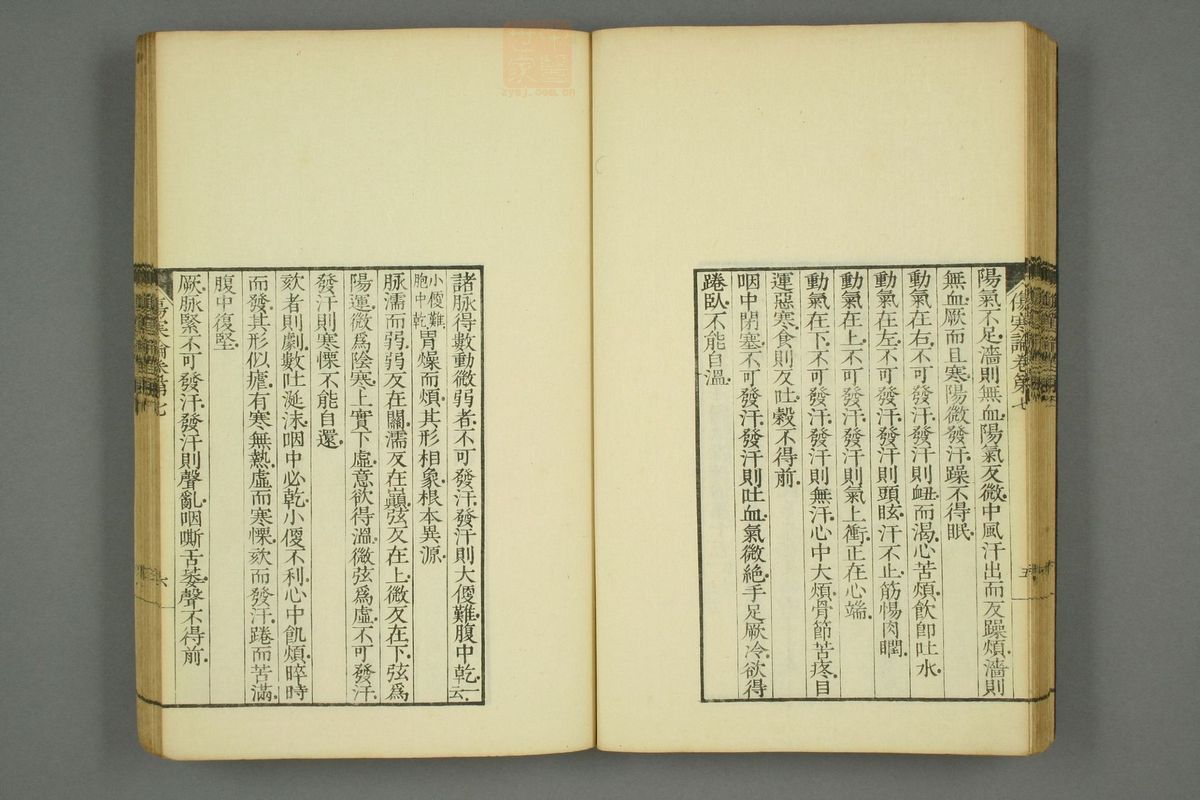 傷寒論卷第七
五
陽氣不足濇則無血陽氣反微中風汗出而反躁煩濇則
無血厥而且寒陽微發汗躁不得眠
動氣在右不可發汗發汗則衄而渴心苦煩飮卽吐水
動氣在左不可發汗發汗則頭眩汗不止筋惕肉瞤
動氣在上不可發汗發汗則氣上衝正在心端
動氣在下不可發汗發汗則無汗心中大煩骨節苦疼目
運惡寒食則反吐穀不得前
咽中閉塞不可發汗發汗則吐血氣微絶手足厥冷欲得
踡臥不能自溫
諸脉得數動微弱者不可發汗發汗則大便難腹中乾一云
小便難胞中乾胃燥而煩其形相象根本異源
脉濡而弱弱反在關濡反在巔弦反在上微反在下弦爲
陽運微爲陰寒上實下虛意欲得溫微弦爲虛不可發汗
發汗則寒慄不能自還
欬者則劇數吐涎沫咽中必乾小便不利心中飢煩晬時
而發其形似瘧有寒無熱虛而寒慄欬而發汗踡而苦滿
腹中復堅
厥脉緊不可發汗發汗則聲亂咽嘶舌萎聲不得前
傷寒論卷第七
六
zysj.com.cn